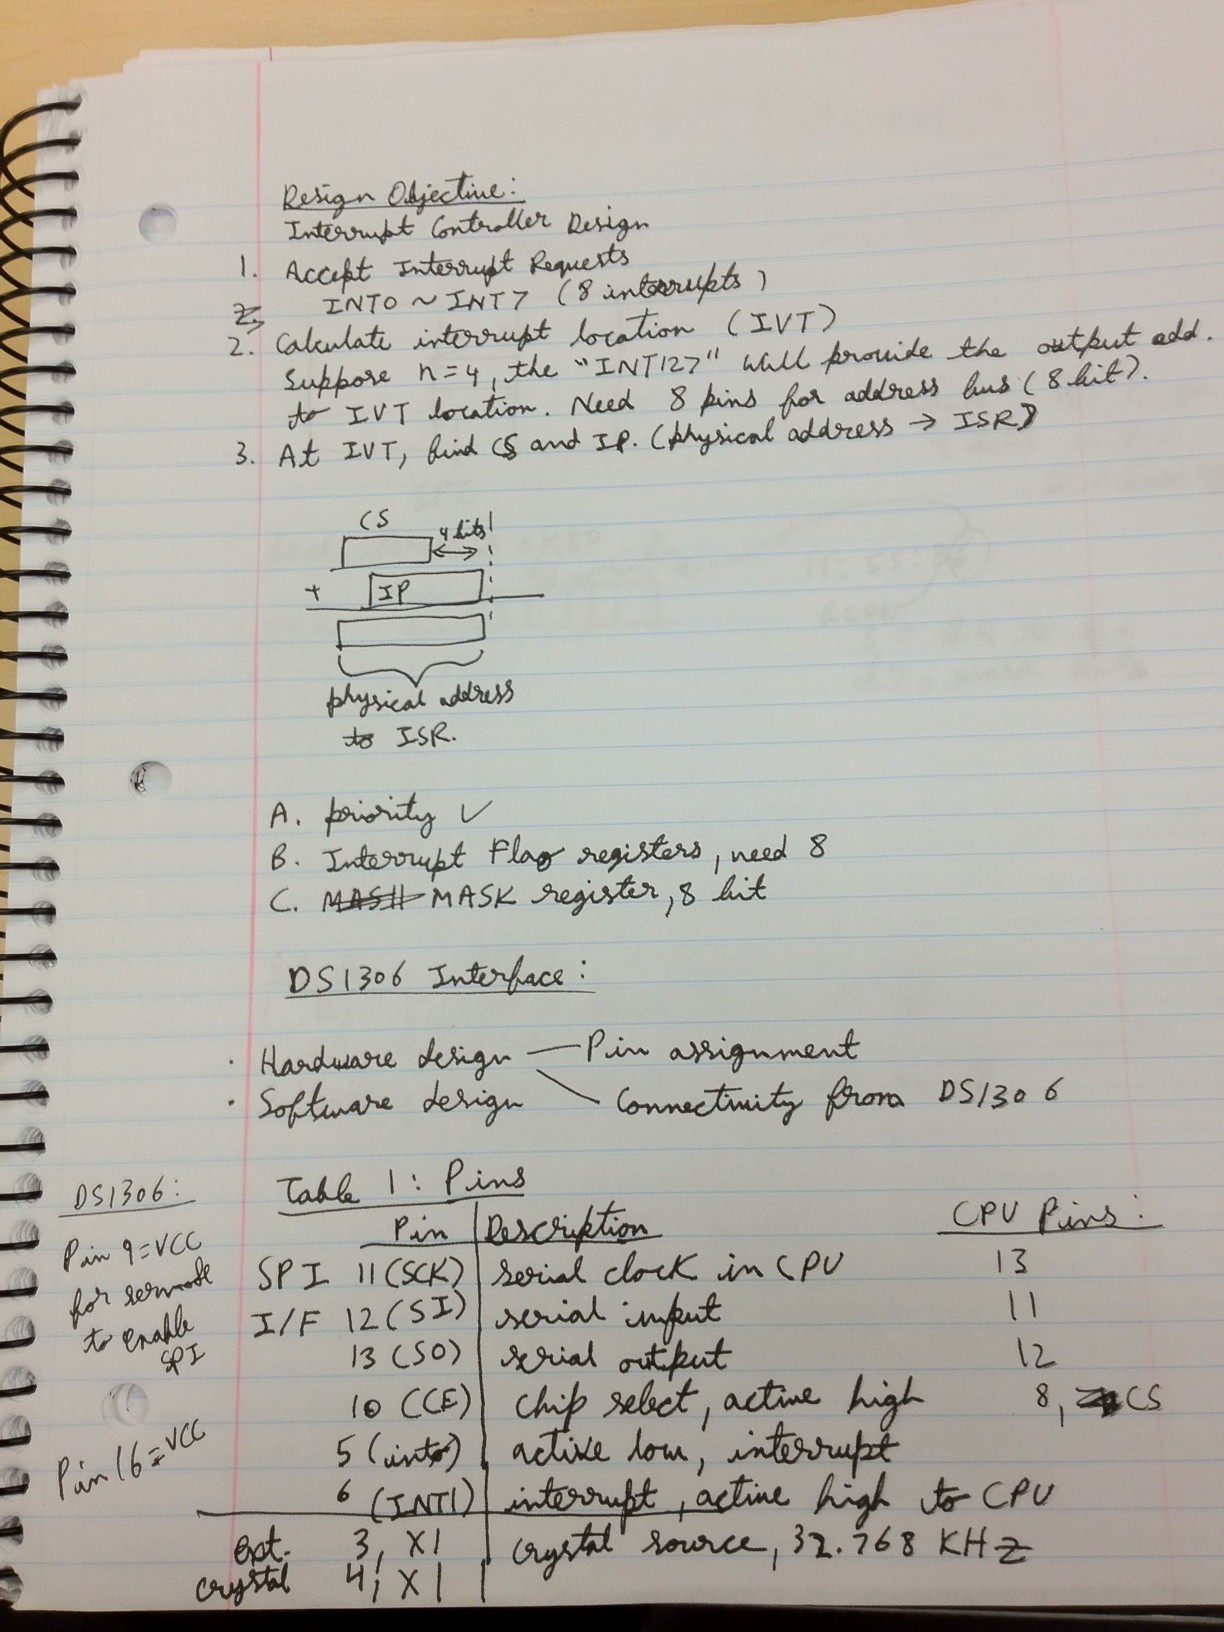 Design Objective:
Interrupt Controller Design
1. Accept Interrupt Requests
INT0 ~ INT7 (8 interrupts)
2. Calculate interrupt location (IVT)
Suppose n=4, the "INT127" will provide the output add.
to IVT location. Need 8 pins for address bus (8 bit).
3. At IVT, find CS and IP. (physical address → ISR)
CS
4 bits
+ IP
physical address
to ISR.
A. priority ✓
B. Interrupt Flag registers, need 8
C. MASK register, 8 bit
DS1306 Interface:
· Hardware design — Pin assignment
· Software design \ Connectivity from DS1306
DS1306:
Pin 9=VCC
for
to enable
SPI
Pin 16=VCC
Table 1: Pins
Pin | Description CPU Pins:
SPI 11 (SCK) | serial clock in CPU 13
I/F 12 (SI) | serial input 11
13 (SO) | serial output 12
10 (CE) | chip select, active high 8, CS
5 (into) | active low, interrupt
6 (INT1) | interrupt, active high to CPU
ext. 3, X1 | crystal source, 32.768 KHz
crystal 4, X1 |